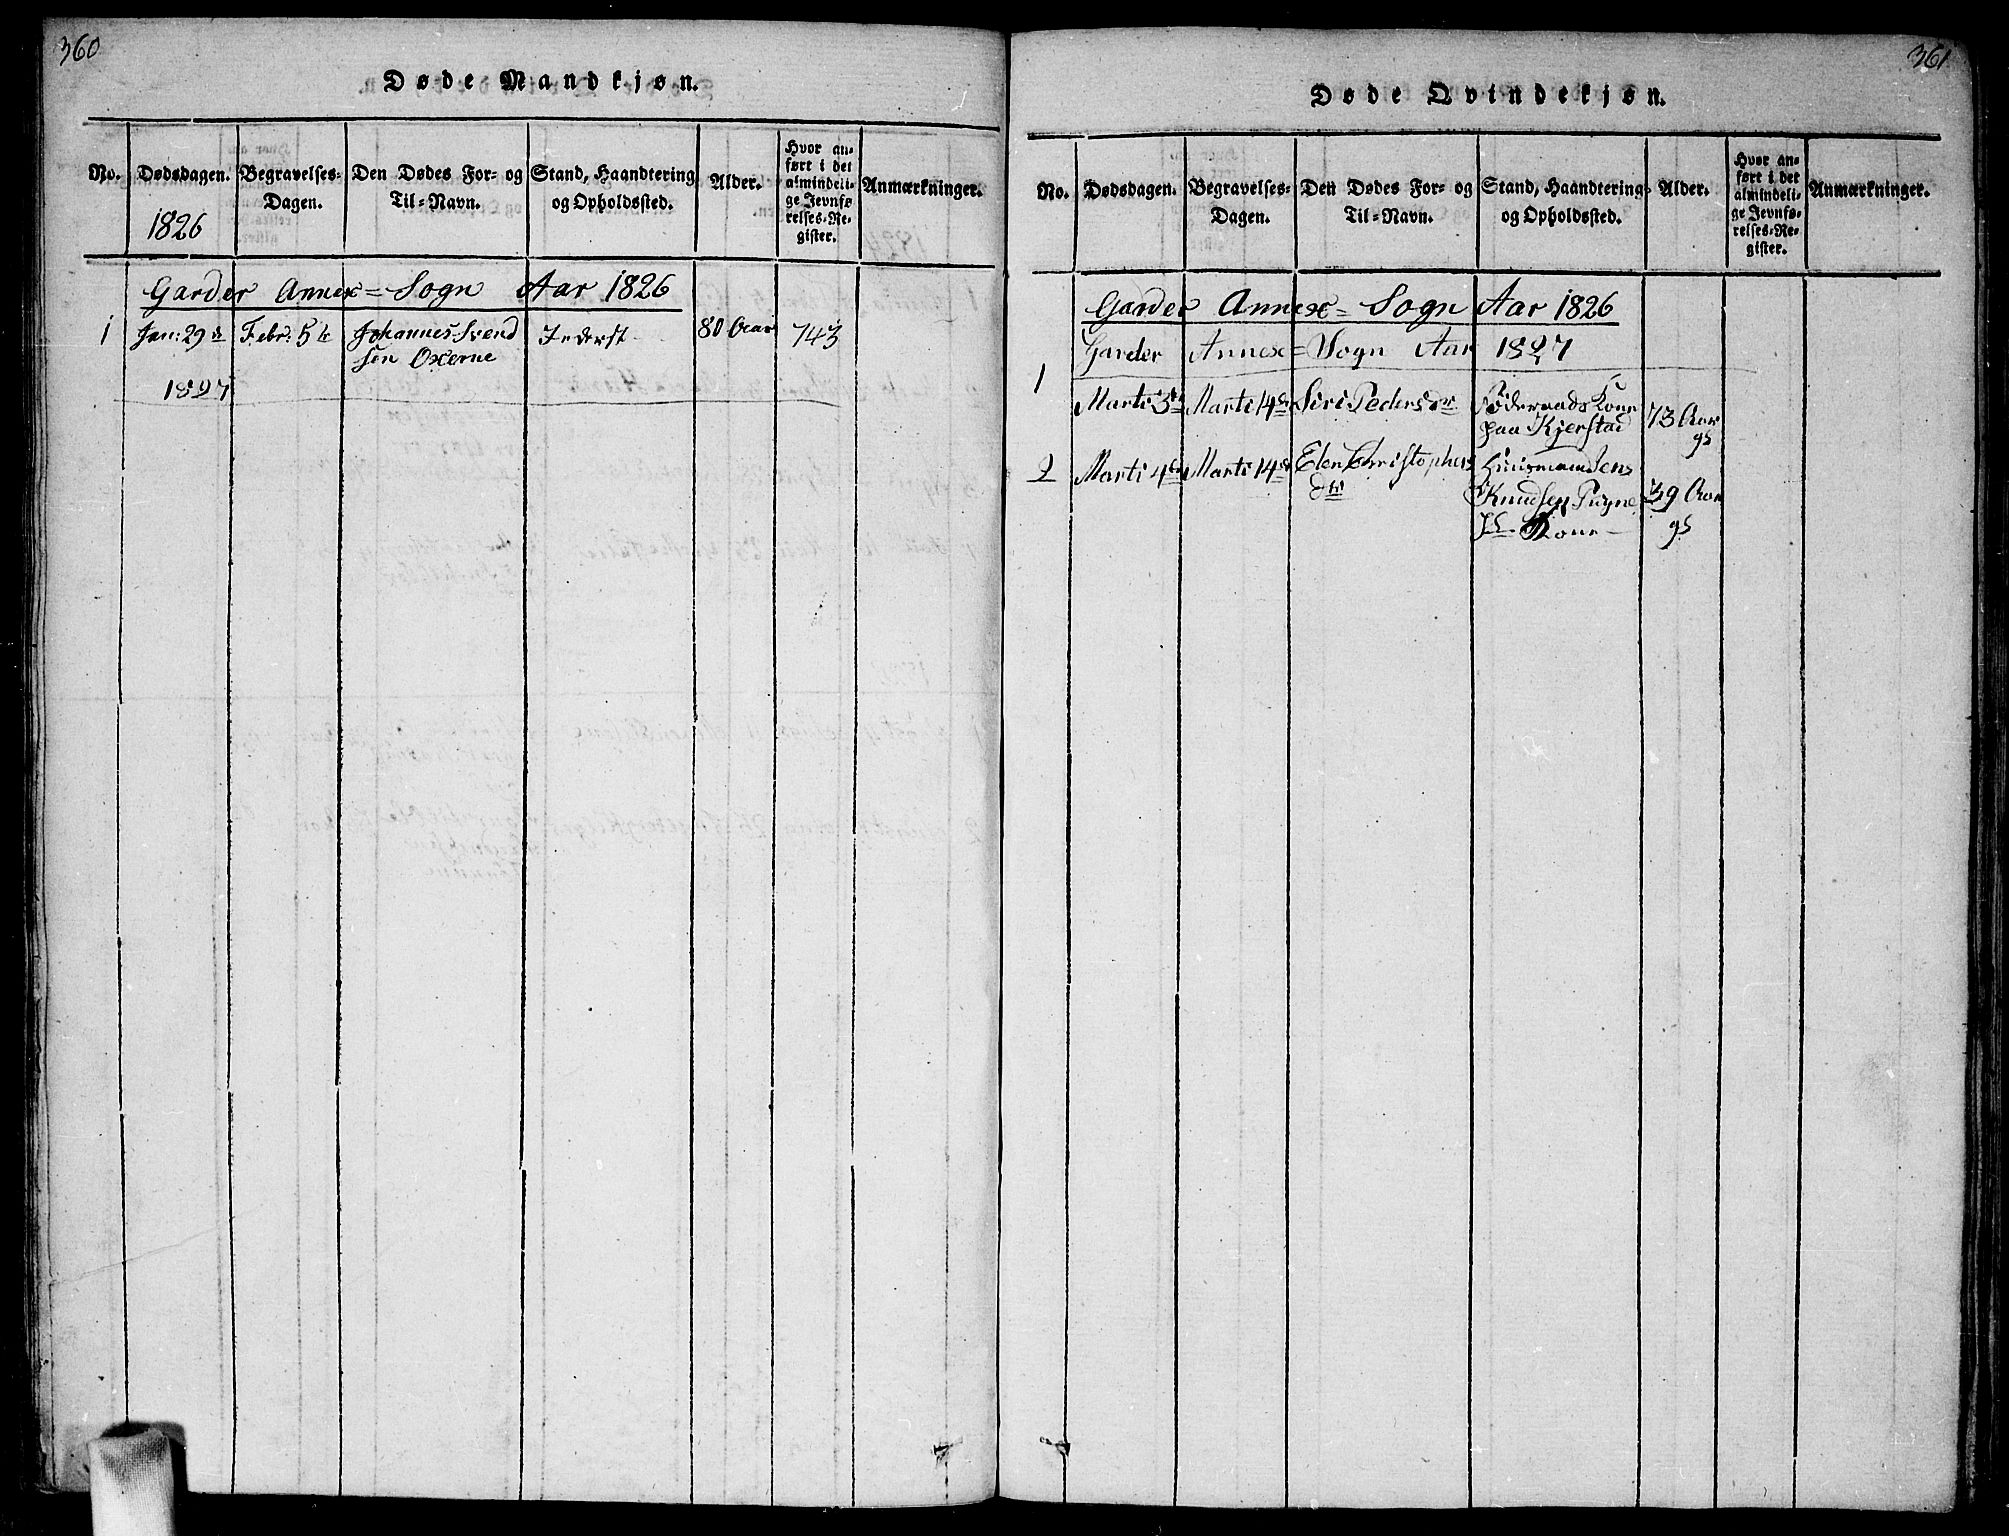 360
Døde Mandkjøn.
No.
Dødsdagen.
1826
Begravelses-
Dagen.
Den Dødes For- og
Til-Navn.
Stand, Haandtering
og Opholdssted.
Alder.
Hvor an-
ført i det
almindeli-
ge Jevnfø-
relses-Re-
gister.
Anmærkninger.
Garder Annex=Sogn Aar 1826
1 Jan: 29 Febr: 5 Johannes Svend Inderst 80 Aar 743
sen Oxerne
1827
361
Døde Qvindekjøn.
No.
Dødsdagen.
Begravelses-
Dagen.
Den Dødes For- og
Til-Navn.
Stand, Haandtering
og Opholdssted.
Alder.
Hvor an-
ført i det
almindeli-
ge Jevnfø-
relses-Re-
gister.
Anmærkninger.
Garder Annex=Sogn Aar 1826
Garder Annex=Sogn Aar 1827
1 Marti 3 Marti 14 Siri Peders Föderaads Kone 73 Aar
paa Kjerstad gl
2 Marti 4 Marti 14 Elen Christophers Huusmandens
Knudsen 39 Aar
Kone gl